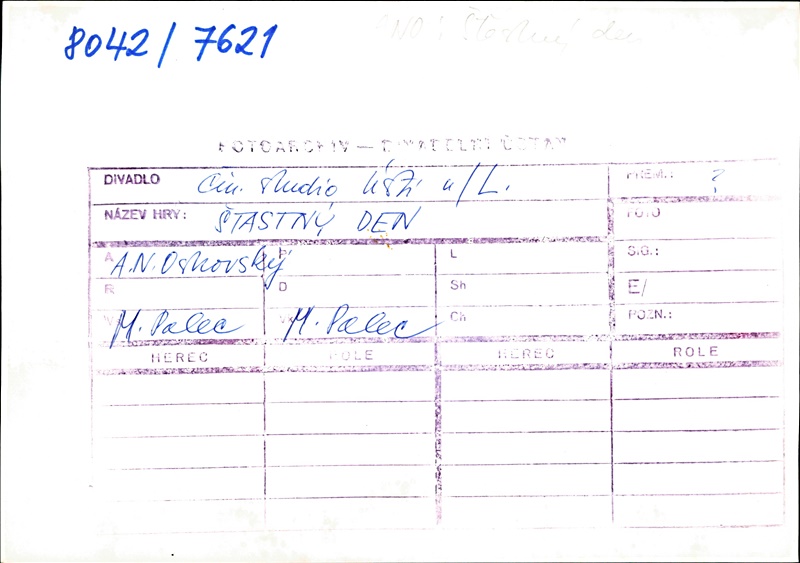 8042/7621
Šťastný den
FOTOARCHIV — DIVADELNÍ ÚSTAV
DIVADLO Čin. studio Ústí n/L. PREM.: ?
NÁZEV HRY: ŠTASTNÝ DEN FOTO
A A.N. Ostrovský P L S.G.:
R D Sh E/
V M. Palec M. Palec Ch POZN.:
HEREC ROLE HEREC ROLE